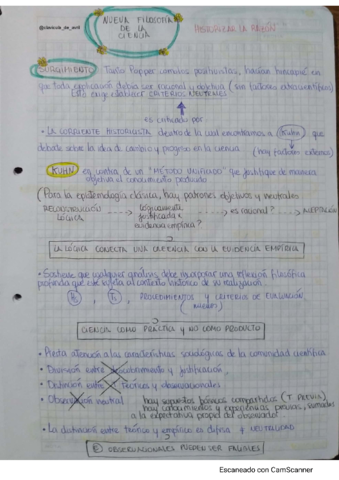 NUEVA FILOSOFÍA
DE LA
CIENCIA
HISTORIZAR LA RAZÓN
SURGIMIENTO: Tanto Popper como los positivistas, hacían hincapié en
que toda explicación debía ser racional y objetiva (sin factores extracientíficos)
Esto exige establecer CRITERIOS NEUTRALES
es criticado por
• LA CORRIENTE HISTORICISTA, dentro de la cual encontramos a Kuhn que
debate sobre la idea de cambio y progreso en la ciencia (hay factores externos)
KUHN en contra de un "MÉTODO UNIFICADO" que justifique de manera
objetiva al conocimiento producido
(Para la epistemología clásica, hay patrones objetivos y neutrales
RECONSTRUCCIÓN LÓGICA → justificada → es racional? → ACEPTACIÓN
evidencia empírica?
LA LÓGICA CONECTA UNA CREENCIA CON LA EVIDENCIA EMPÍRICA
• Sostiene que cualquier análisis debe incorporar una reflexión filosófica
profunda que este sujeta al contexto histórico de su realización
PROCEDIMIENTOS Y CRITERIOS DE EVALUACIÓN
CIENCIA COMO PRÁCTICA Y NO COMO PRODUCTO
• Presta atención a las características sociológicas de la comunidad científica
• Distinción entre descubrimiento y justificación
• Distinción entre teóricos y observacionales
• Observación neutral hay supuestos básicos compartidos (T. PREVIA)
hay conocimientos y experiencias previas, sumados
a la expectativa propia del observador
• La distinción entre teórico y empírico es difusa y NEUTRALIDAD
OBSERVACIONALES PUEDEN SER FALIBLES
Escaneado con CamScanner